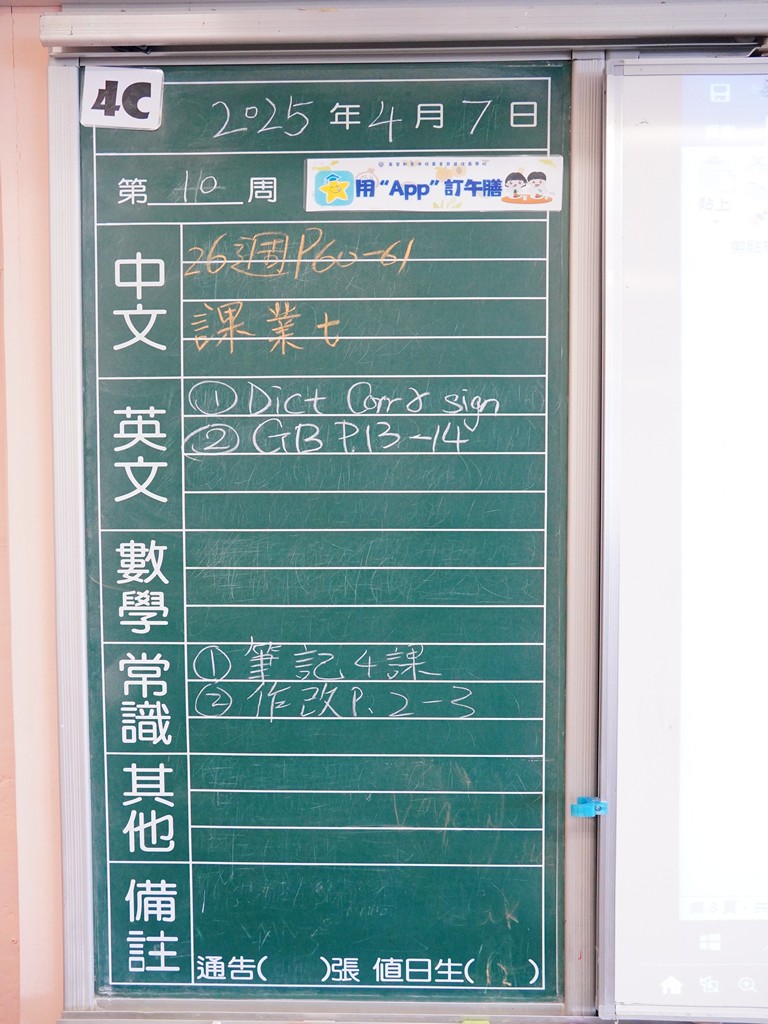 4C
2025年4月7日
第10周
用“App”訂午膳
中文
26週P60-61
課業七
英文
① Dict Corr & sign
② GB P.13-14
數學
常識
① 筆記4課
② 作改P. 2-3
其他
備註
通告( )張 值日生(12)